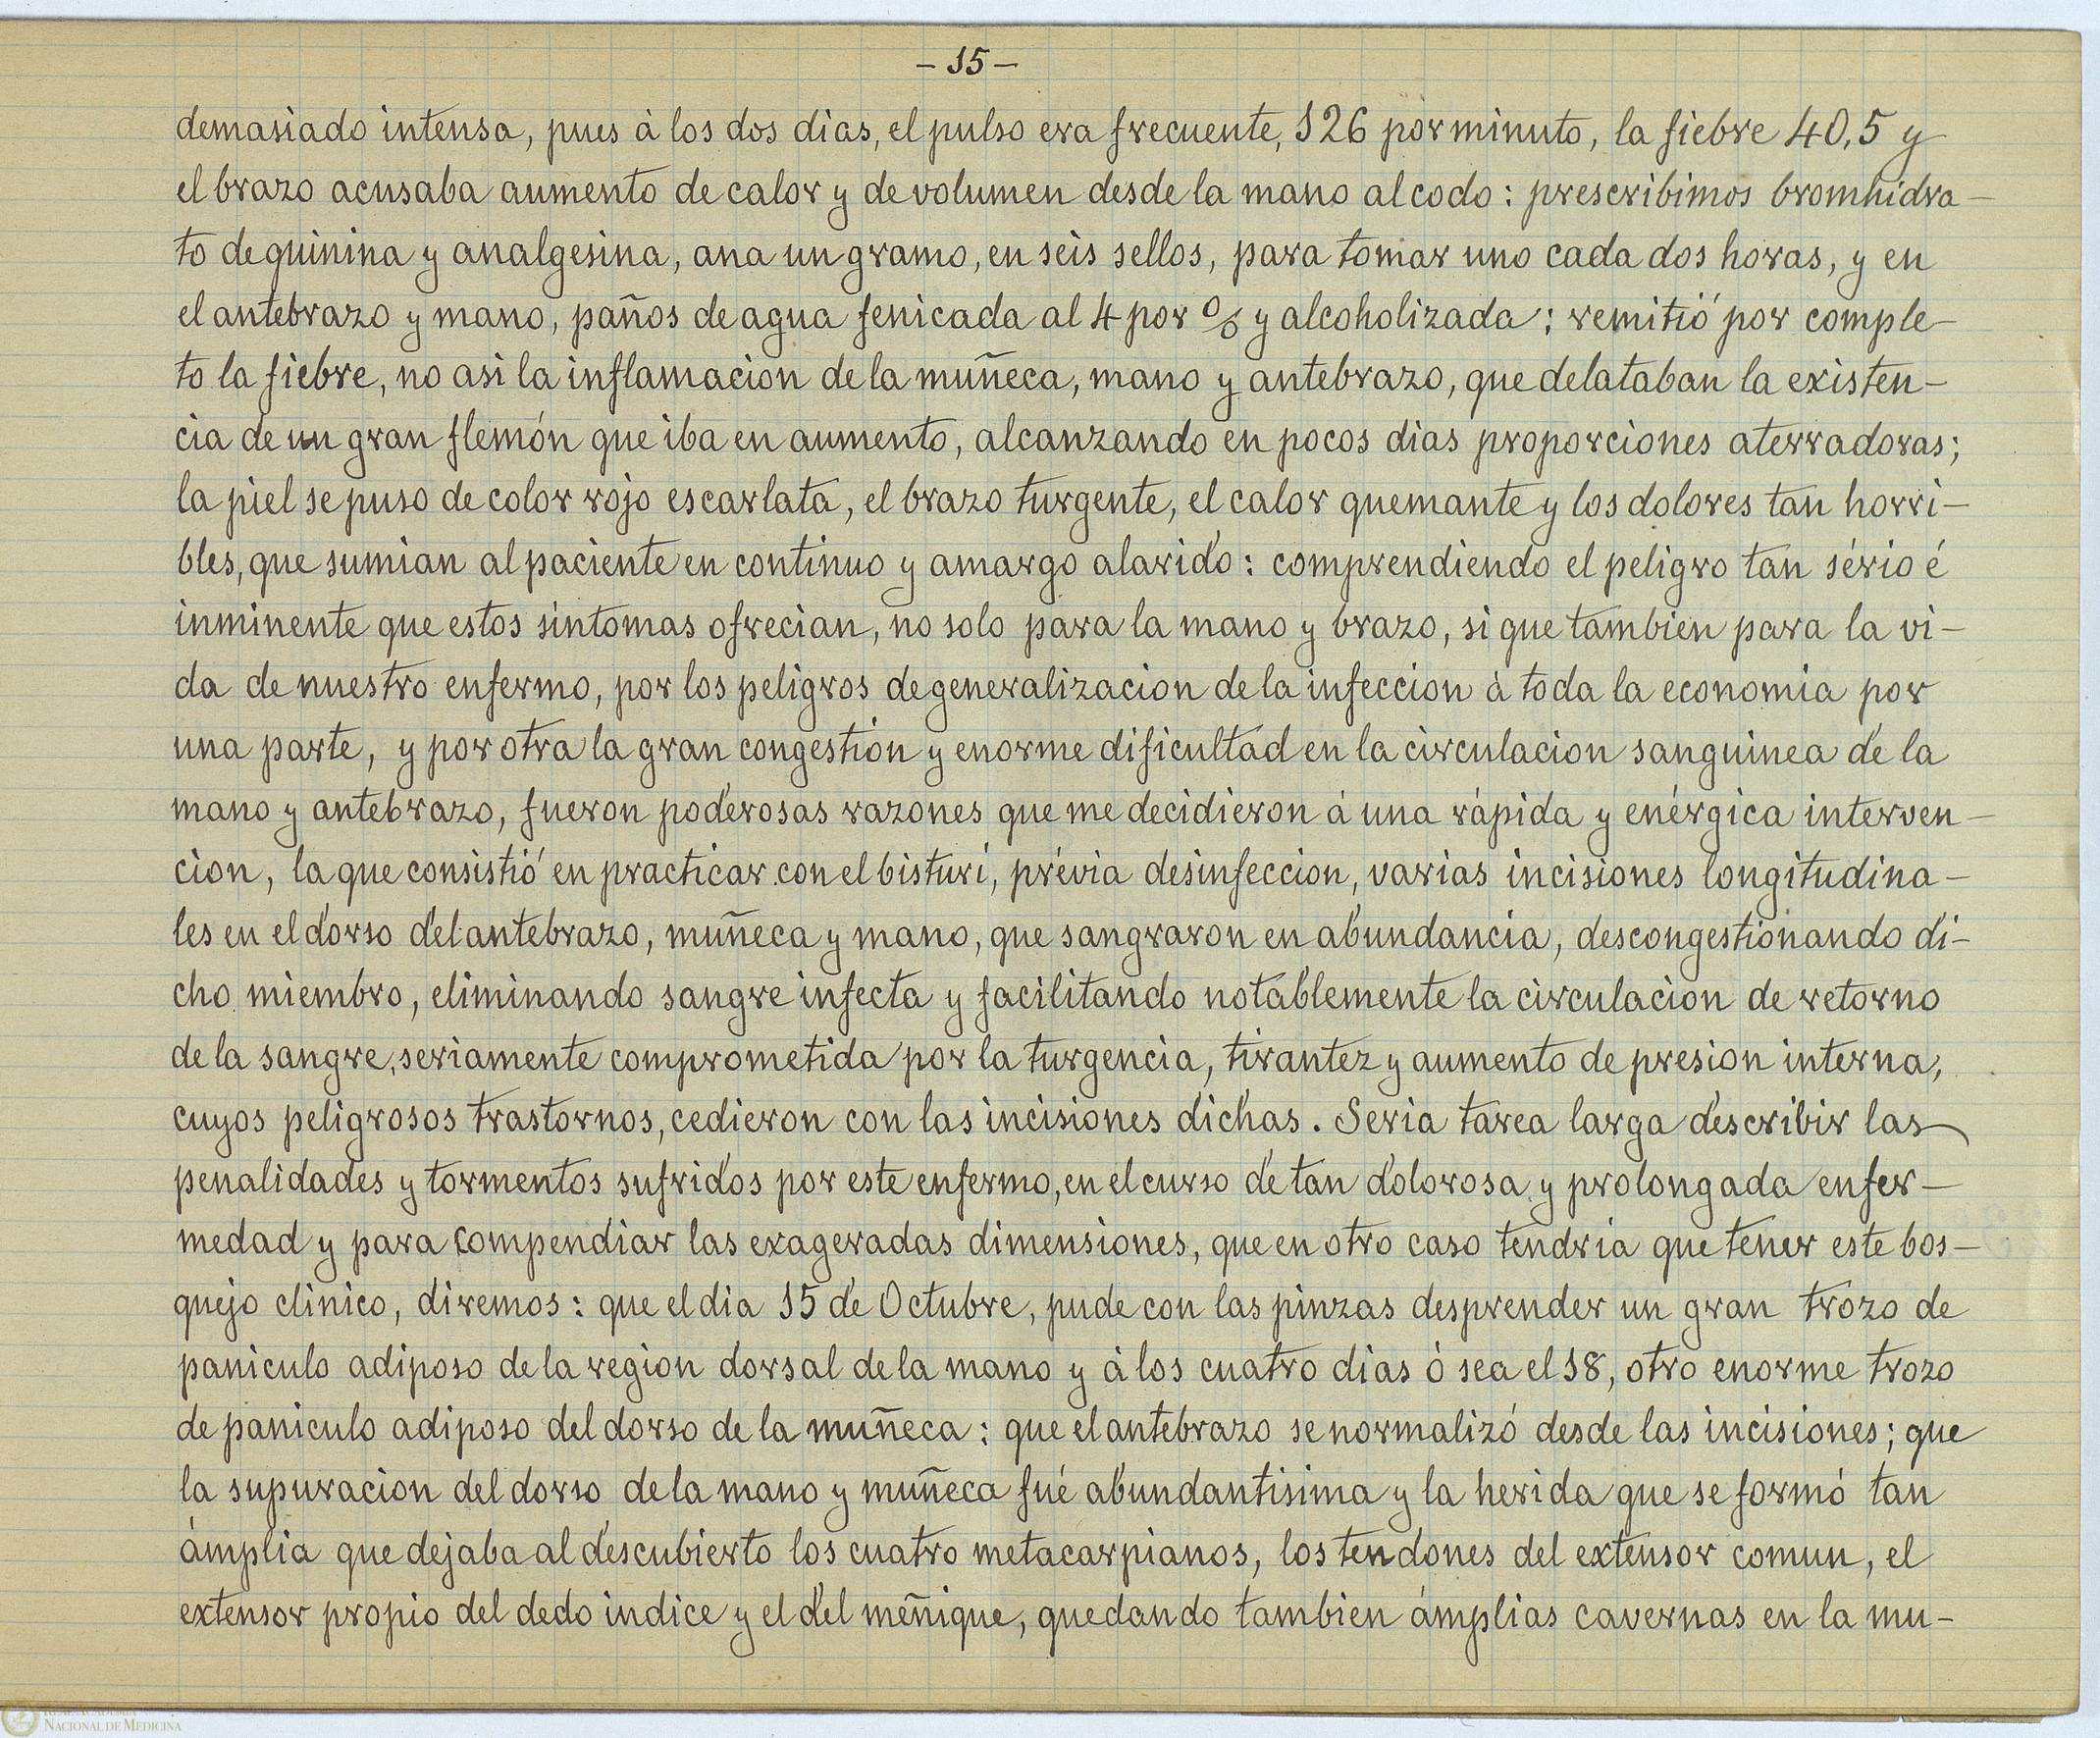 - 15 -
demasiado intensa, pues á los dos dias, el pulso era frecuente, 126 por minuto, la fiebre 40,5 y
el brazo acusaba aumento de calor y de volumen desde la mano al codo: prescribimos bromhidra-
to de quinina y analgesina, ana un gramo, en seis sellos, para tomar uno cada dos horas, y en
el antebrazo y mano, paños de agua fenicada al 4 por % y alcoholizada; remitió por comple-
to la fiebre, no asi la inflamacion de la muñeca, mano y antebrazo, que delataban la existen-
cia de un gran flemón que iba en aumento, alcanzando en pocos dias proporciones aterradoras;
la piel se puso de color rojo escarlata, el brazo turgente, el calor quemante y los dolores tan horri-
bles, que sumian al paciente en continuo y amargo alarido: comprendiendo el peligro tan sério é
inminente que estos sintomas ofrecian, no solo para la mano y brazo, si que tambien para la vi-
da de nuestro enfermo, por los peligros de generalizacion de la infeccion á toda la economia por
una parte, y por otra la gran congestión y enorme dificultad en la circulacion sanguinea de la
mano y antebrazo, fueron poderosas razones que me decidieron á una rápida y enérgica interven-
cion, la que consistió en practicar con el bisturí, prévia desinfeccion, varias incisiones longitudina-
les en el dorso del antebrazo, muñeca y mano, que sangraron en abundancia, descongestionando di-
cho miembro, eliminando sangre infecta y facilitando notablemente la circulacion de retorno
de la sangre, seriamente comprometida por la turgencia, tirantez y aumento de presion interna,
cuyos peligrosos trastornos, cedieron con las incisiones dichas. Seria tarea larga describir las
penalidades y tormentos sufridos por este enfermo, en el curso de tan dolorosa y prolongada enfer-
medad y para compendiar las exageradas dimensiones, que en otro caso tendría que tener este bos-
quejo clinico, diremos: que el dia 15 de Octubre, pude con las pinzas desprender un gran trozo de
paniculo adiposo de la region dorsal de la mano y á los cuatro dias ó sea el 18, otro enorme trozo
de paniculo adiposo del dorso de la muñeca: que el antebrazo se normalizó desde las incisiones; que
la supuracion del dorso de la mano y muñeca fué abundantisima y la herida que se formó tan
ámplia que dejaba al descubierto los cuatro metacarpianos, los tendones del extensor comun, el
extensor propio del dedo indice y el del meñique, quedando tambien ámplias cavernas en la mu-
REAL ACADEMIA
NACIONAL DE MEDICINA